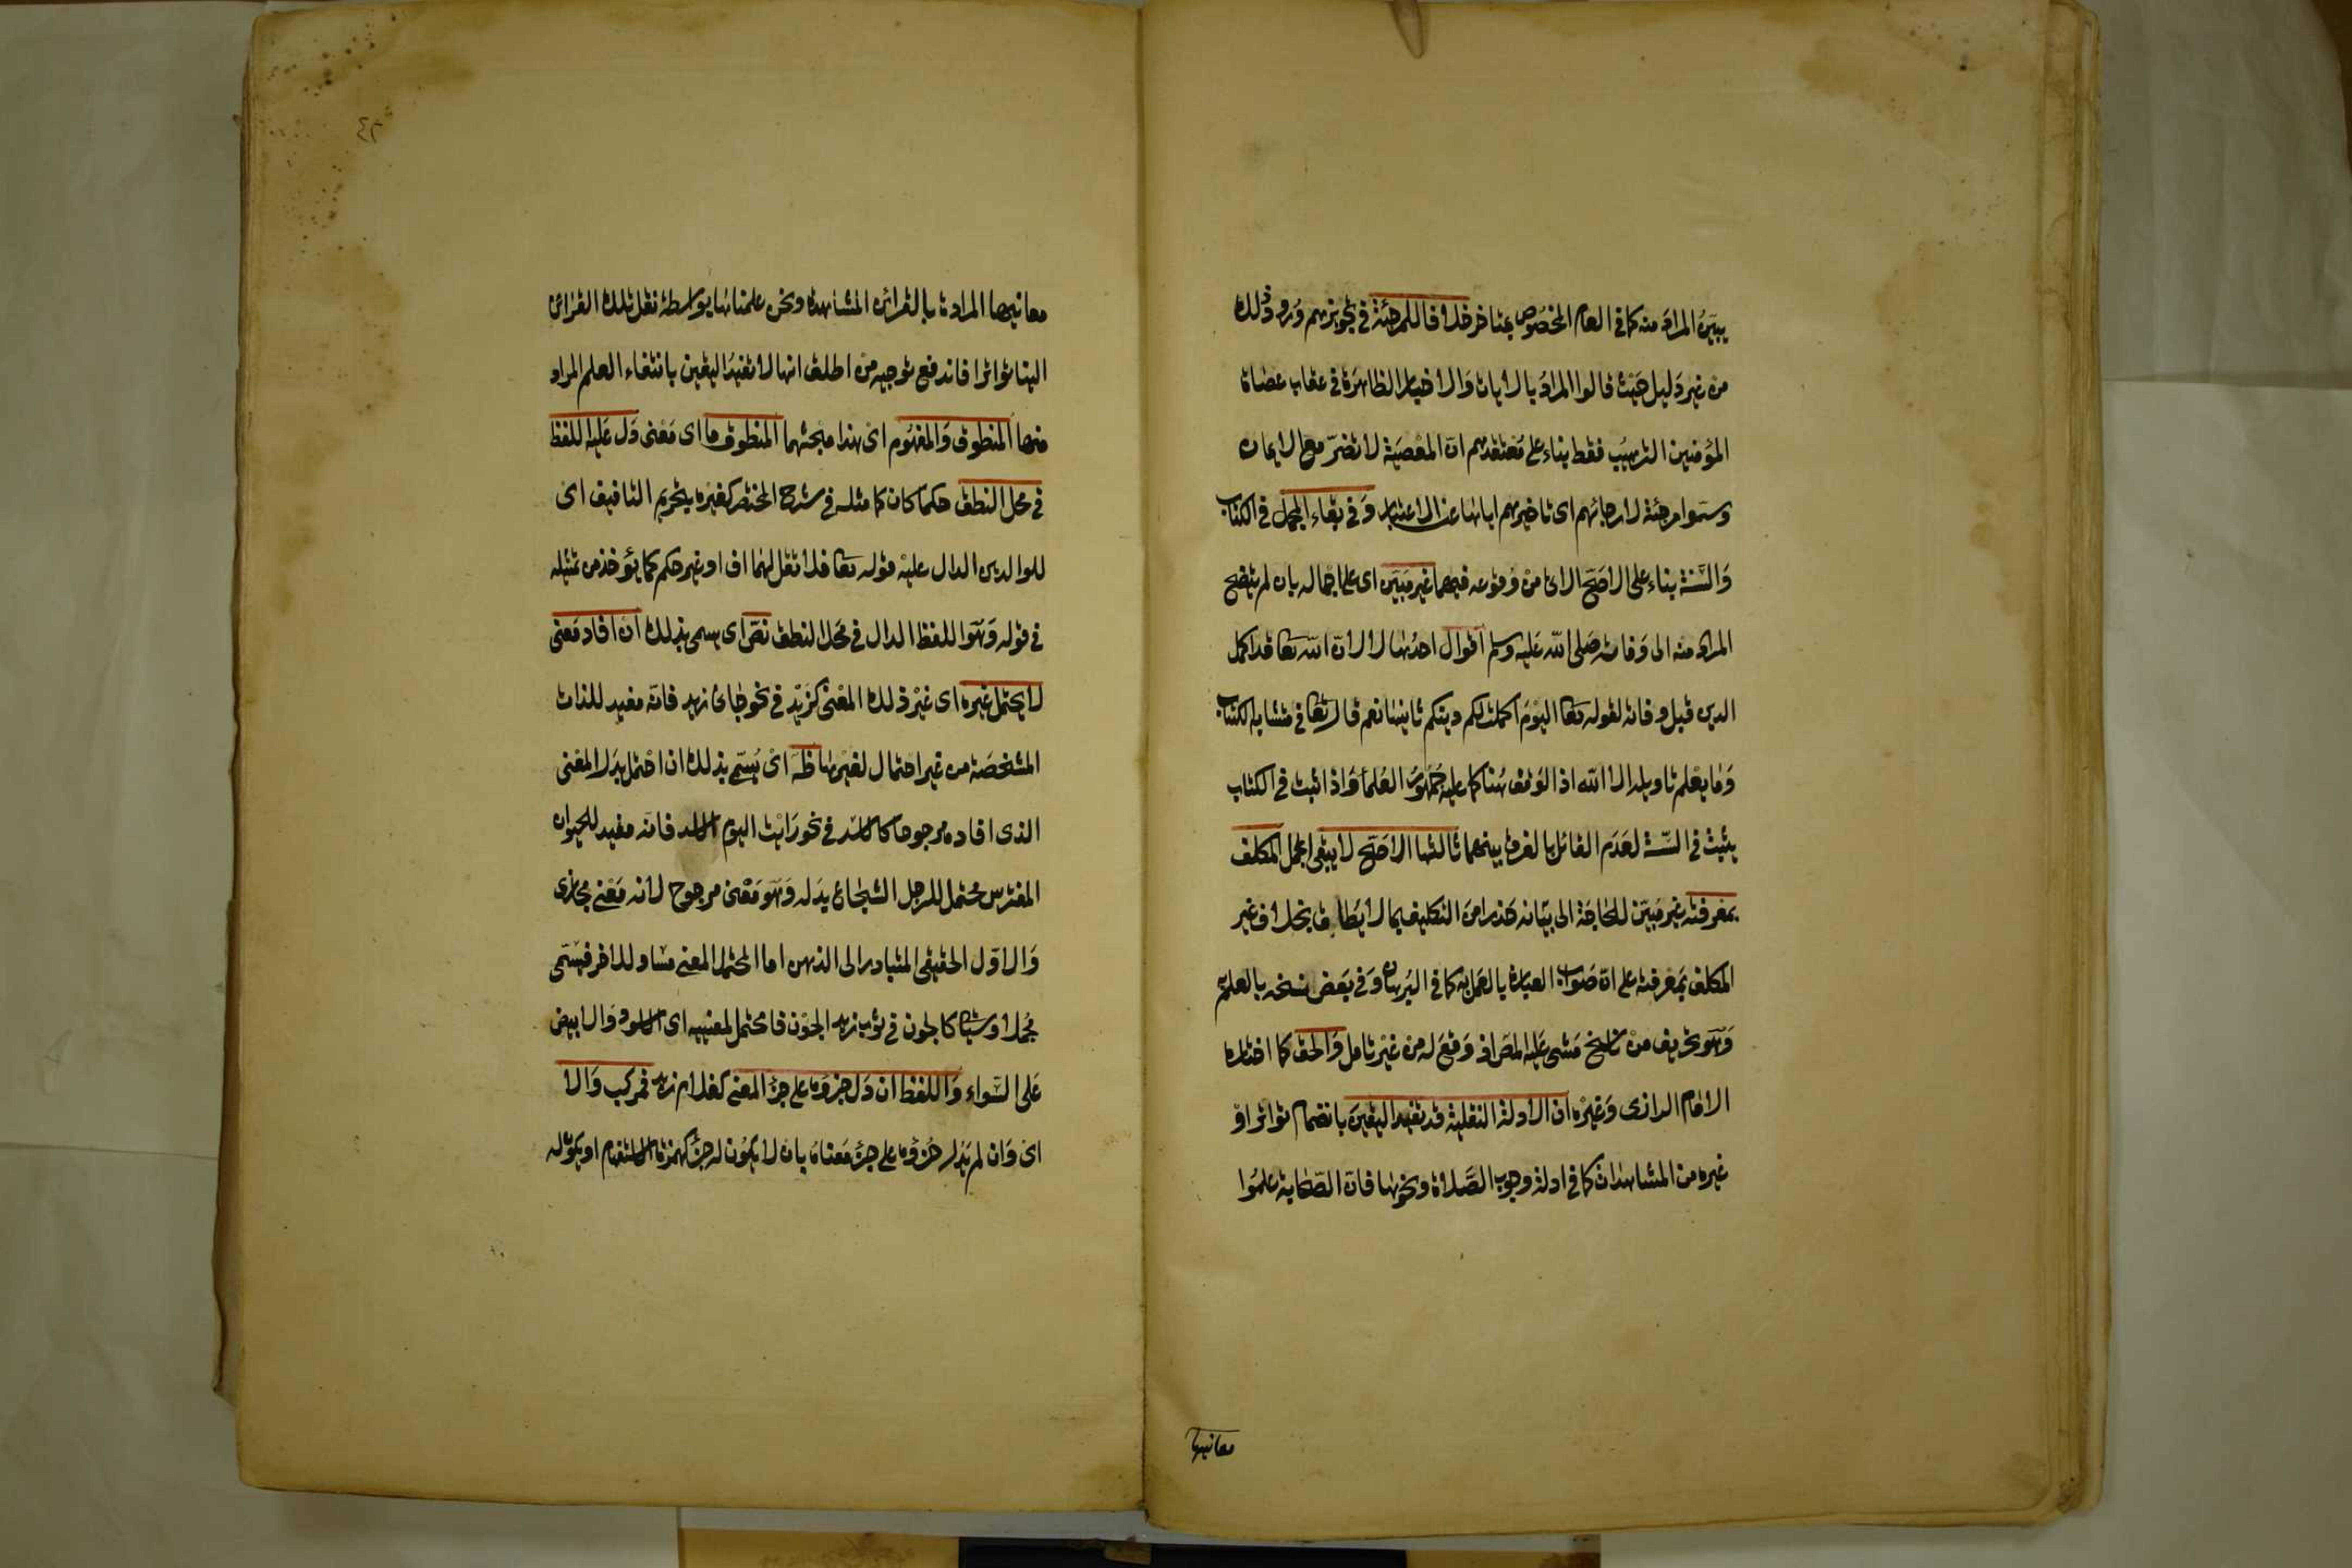 يبيّنُ المرادَ منه كما في العام المخصُوص بمتأخر خلافا للمرجئة في تجويزهم وُرود ذلك
من غير دَليل حَيْث قالوا المرادُ بالايات وَالاخبار الظاهرَة في عقاب عصَاة
المؤمنين الترهيبُ فقط بناء على مُعتقدهم انّ المعْصيَة لا تضرّ مع الايمان
وسمّوا مرجئة لارجائهم اى تاخيرهم اياها عن الاعتبار وَفي بقاء المجمل في الكتاب
وَالسّنة بناء على الاصَحّ الاتى منْ وُقوعه فيهما غير مبَيّن اى على اجماله بان لم يتضح
المراد منه الى وَفاته صَلى الله عَليْه وسلم اقوال احدُها لا لانّ الله تعا قد اكمل
الدين قبل وفاته لقوله تعا اليَوْمَ اكملت لكم دينكم ثانيها نعم قال تعا في متشابه الكتاب
وَمَا يعْلم تاويله الا الله اذ الوَقف هُنا كما عليه جُمهُورُ العُلماء وَاذا ثبت في الكتاب
يثبتُ في السّنة لعَدَم القائل بالفرق بينهما ثالثها الاصَحّ لا يبقى المجمل المكلف
بمَعرفته غير مبيّن للحَاجَة الى بيَانه حَذرا منَ التكليف بما لا يُطاق بخلاف غير
المكلف بمَعْرفته على انّ صَوابَ العبارة بالعَمل به كما في البُرهان وَفي بعَض نسَخه بالعلم به
وَهوَ تحْريف منْ نَاسخ مَشى عَليْه المصَنف وَقعَ له من غيْر تامل وَالحقّ كما اختاره
الامَام الرازى وَغيْره انّ الادلة النقلية قد تفيد اليقينَ بانضمام تواتر اوْ
غيره من المشاهَدات كما في ادلة وجوب الصَّلاة ونحوها فانّ الصّحَابة علمُوا
معانيها
٤٢
معانيها المرادة بالقرائن المشاهدة ونحن علمناها بواسطة نقل تلك القرائن
الينا تواترا فاندفع توجيه منْ اطلق انها لا تفيدُ اليقين بانتفاء العلم بالمراد
منها المنطوق وَالمفهوُم اىْ هذا مبحثهما المنطوق ما اى مَعْنى دَل عَليْه اللفظ
في محل النطق حكمًا كان كما مثله في شرح المختصر كغيْره بتحْريم التافيف اى
للوالدين الدال عليْه قوله تعا فلا تقل لهُما اف او غير حكم كما يُؤخذ من تمثيله
في قوله وَهوَ اللفظ الدال في مَحَل النطق نصّ اى يسمى بذلك ان افاد مَعْنى
لا يحتمل غيره اى غيْر ذلك المعْنى كزَيْد في نحو جَاءَ زيد فانّه مفيد للذات
المشخصَة من غير احتمال لغيْرهَا ظاهر اىْ يُسَمّى بذلك ان احْتمل بدَل المعْنى
الذى افاده مرجوحا كالاسد في نحو رَايْت اليوم الاسد فانّه مفيد للحيوان
المفترس محتمل للرجل الشجَاع بدَله وَهوَ مَعْنى مرجوح لانه مَعْنى مجازى
وَالاوّل الحقيقى المتبادر الى الذهن اما المحتمل لمعنى مسَاو للاخر فيسَمّى
مُجملا وسيَاتى كالجون في ثوب زيد الجوْن فانه محتمل لمعنييه اى الاسود وَالابيض
عَلى السّواء وَاللفظ ان دَل جزؤه على جزء المعْنى كغلام زيد فمركب وَالا
اى وَان لم يَدُل جُزؤه على جزء مَعناهُ بان لا يكوُن له جزء كهمزة الاستفهام او يكون له